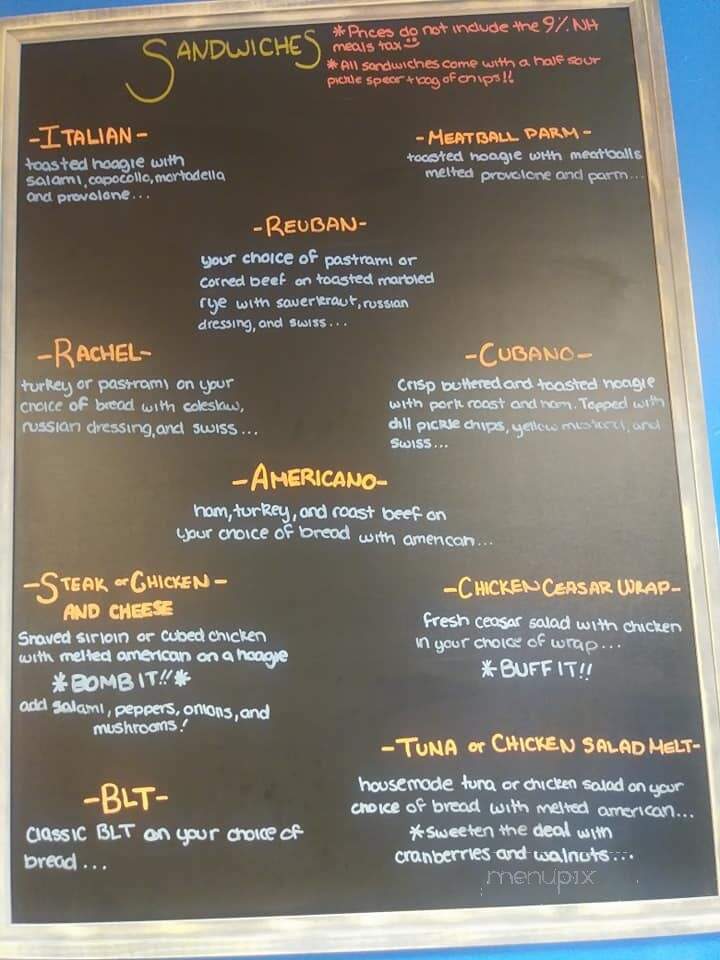 SANDWICHES
*Prices do not include the 9% NH
meals tax
*All sandwiches come with a half sour
pickle spear + bag of chips!!
-ITALIAN-
toasted hoagie with
salami, capocollo, mortadella
and provolone...
-MEATBALL PARM-
toasted hoagie with meatballs
melted provolone and parm...
-REUBAN-
your choice of pastrami or
corned beef on toasted marbled
rye with sauerkraut, russian
dressing, and swiss...
-RACHEL-
turkey or pastrami on your
choice of bread with coleslaw,
russian dressing, and swiss...
-CUBANO-
Crisp buttered and toasted hoagie
with pork roast and ham. Topped with
dill pickle chips, yellow mustard, and
swiss...
-AMERICANO-
ham, turkey, and roast beef on
your choice of bread with american...
-STEAK or CHICKEN-
AND CHEESE
Shaved sirloin or cubed chicken
with melted american on a hoagie
*BOMB IT!!*
add salami, peppers, onions, and
mushrooms!
-CHICKEN CEASAR WRAP-
fresh ceasar salad with chicken
in your choice of wrap...
*BUFF IT!!
-TUNA or CHICKEN SALAD MELT-
housemade tuna or chicken salad on your
choice of bread with melted american...
*sweeten the deal with
cranberries and walnuts...
-BLT-
Classic BLT on your choice of
bread...
menupix